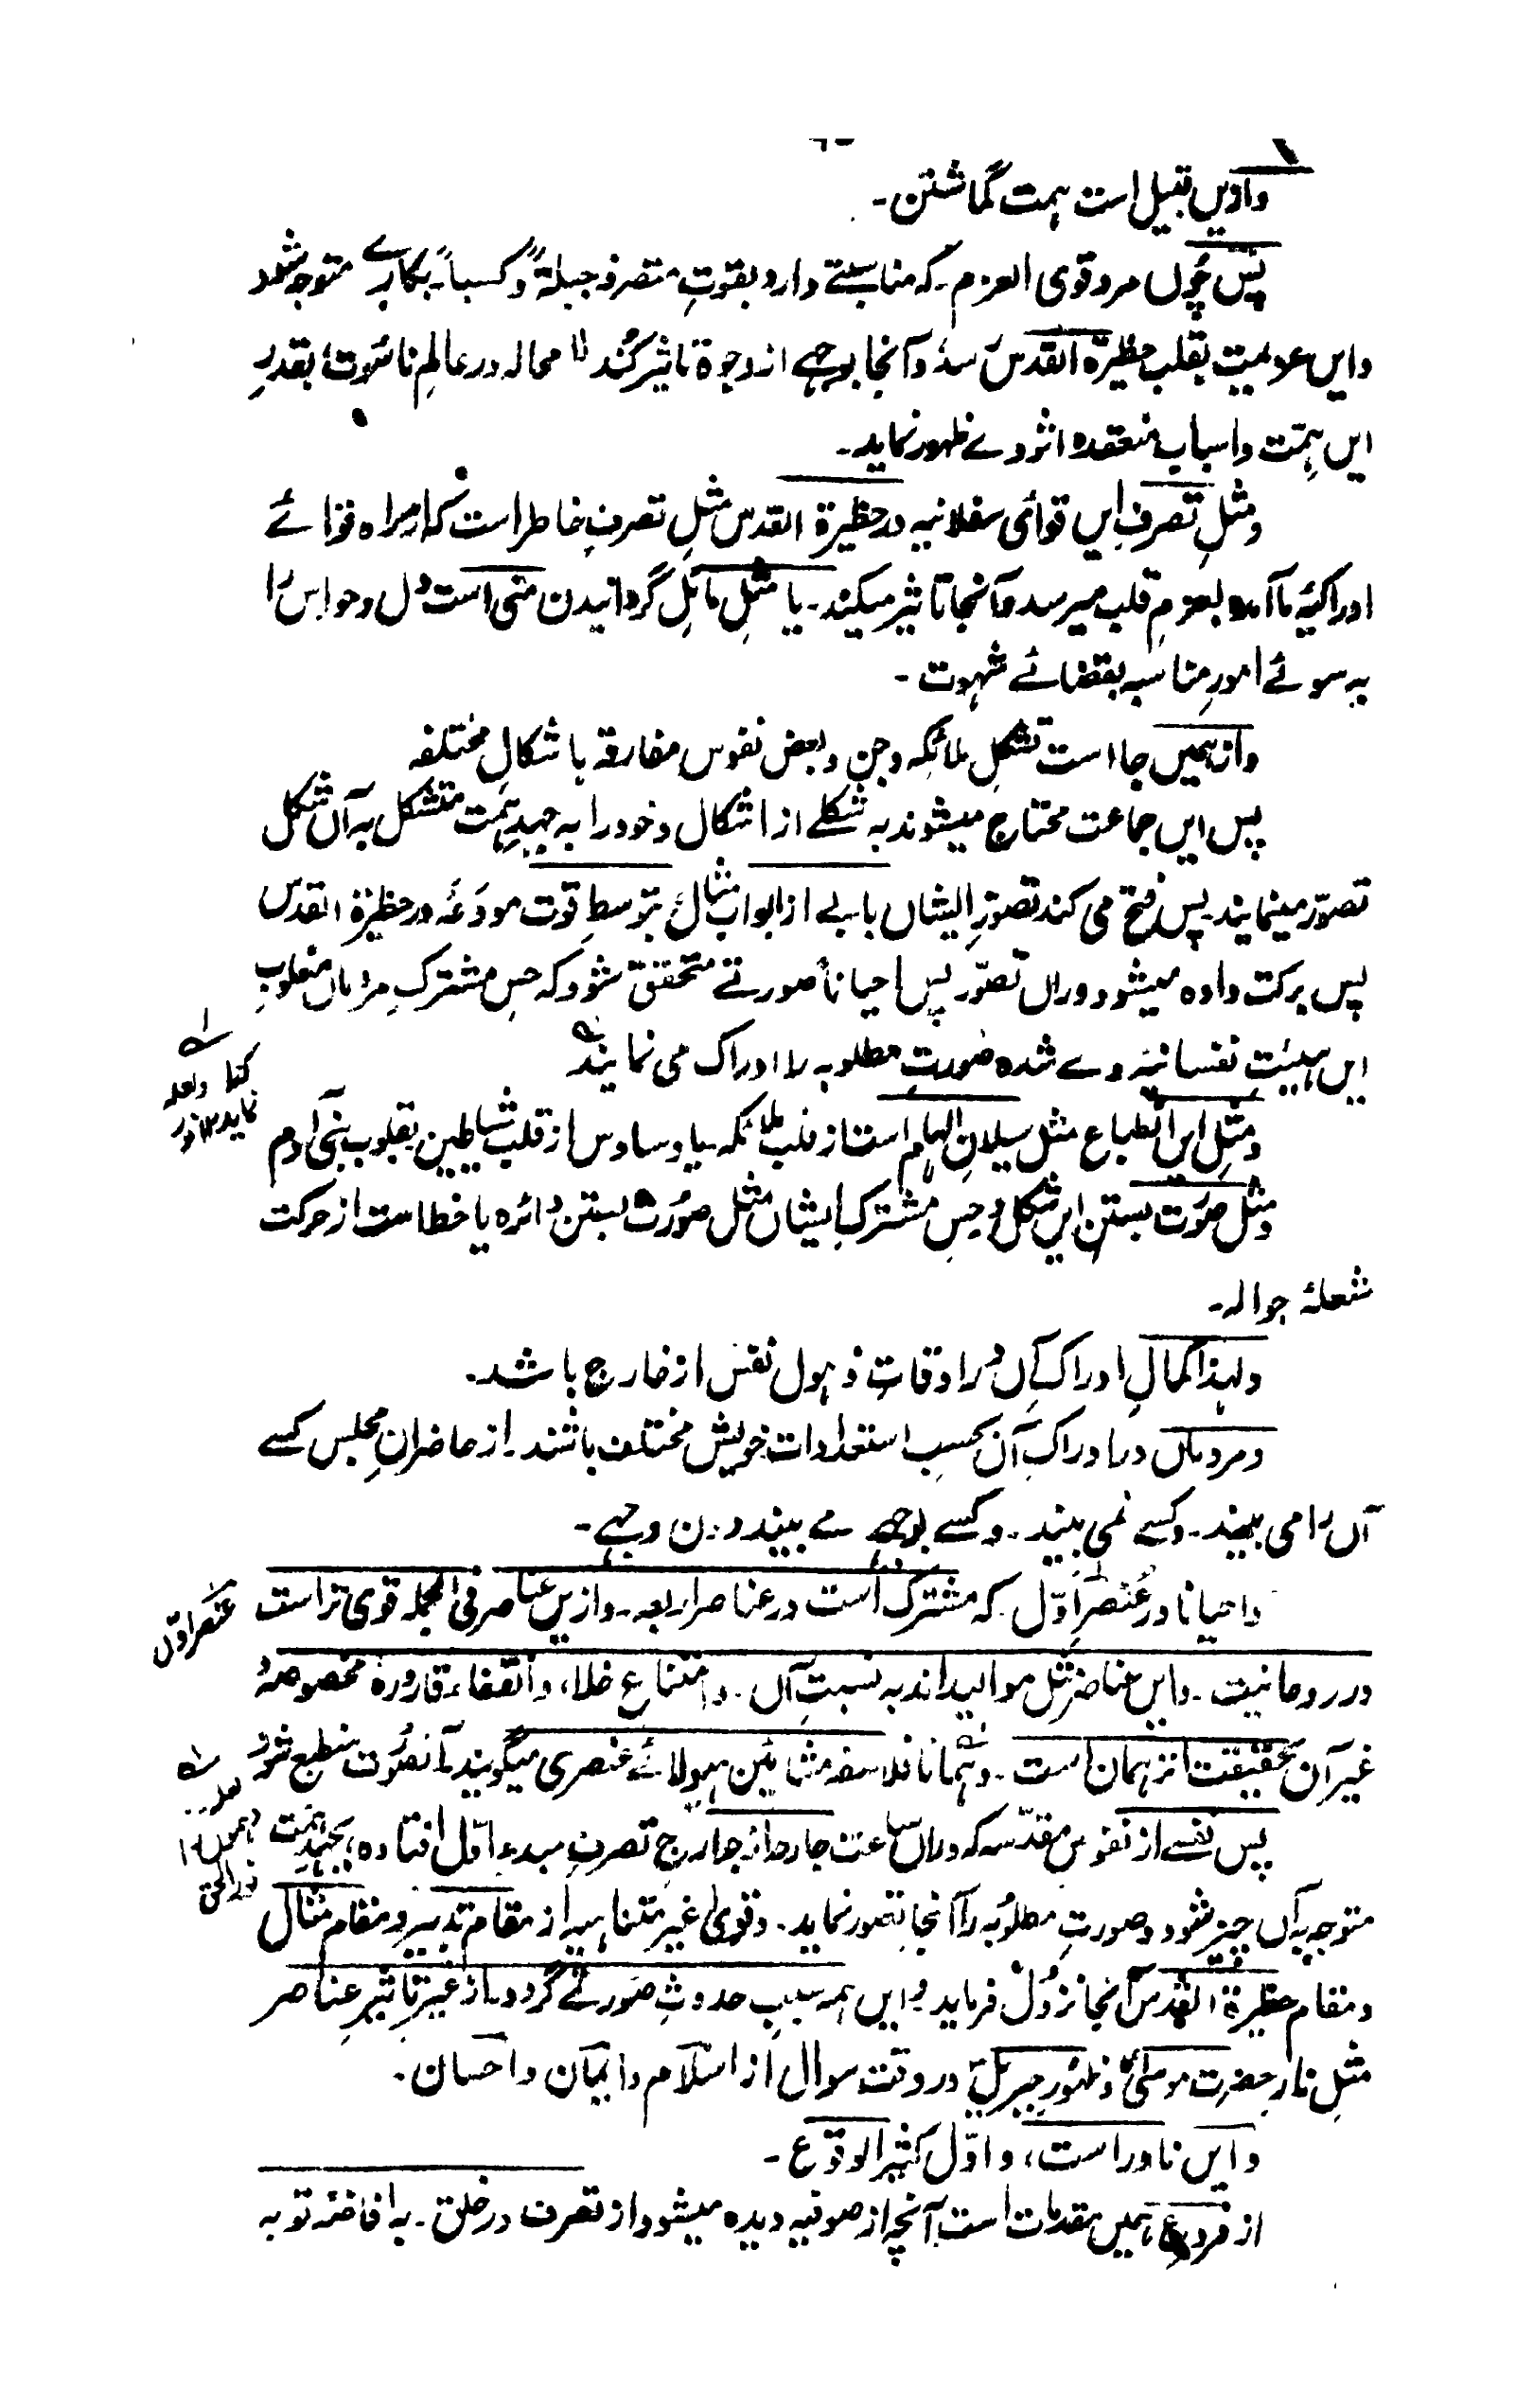 وازیں قبیل است ہمت گماشتن۔
پس چوں مرد قوی العزم۔ کہ مناسبتے دارد بقوتِ متصرفہ جبلۃً وکسباً۔ بکارے متوجہ شود
وایں عزیمت بقلب حظیرۃ القدس رسد وآنجا بوجہے از وجوہ تاثیر کند لا محالہ در عالمِ ناسوت بقدرِ
ایں ہمت واسبابِ منعقدہ اثر وے ظہور نماید۔
ومثلِ تصرفِ ایں قوائی سفلانیہ در حظیرۃ القدس مثلِ تصرفِ خاطر است کہ از راہ قوائے
ادراکیہ ما آمدہ بعزمِ قلب میرسد وآنجا تاثیر میکند۔ یا مثلِ مائل گردانیدن منی است دل وحواس را
بہ سوئے امورِ مناسبہ بقضائے شہوت۔
وازہمیں جا است تشکلِ ملائکہ وجن وبعض نفوس مفارقہ باشکالِ مختلفہ
پس ایں جماعت محتاج میشوند بہ شکلے از اشکال وخود را بہ جہدِ ہمت متشکل بہ آں شکل
تصوّر مینمایند۔ پس فتح می کند تصوّرِ ایشاں بابے از ابوابِ مثال بتوسطِ قوت مودَعَہ در حظیرۃ القدس
پس برکت دادہ میشود دراں تصوّر پس احیاناً صورتے متحقق شود کہ حسِ مشترکِ مردماں مغلوبِ
ایں ہیئتِ نفسانیہ وے شدہ صورتِ مطلوبہ را ادراک می نمایند
ومثلِ ایں انطباع مثل سیلانِ الہام است از قلبِ ملائکہ۔ یا وساوس از قلب شیاطین بقلوب بنی آدم
ومثل صورت بستن ایں شکل در حسِ مشترک ایشاں مثل صورت بستن دائرہ یا خط است از حرکت
شعلۂ جوالہ۔
ولہذا کمالِ ادراک آں در اوقاتِ ذہول نفس از خارج باشد۔
ومردماں در ادراکِ آن بحسبِ استعدادات خویش مختلف باشند۔ از حاضرانِ مجلس کسے
آں را می بیند۔ وکسے نمی بیند۔ وکسے بوجہے مے بیند دون وجہے۔
واحیانا در عُنصرِ اوّل کہ مشترک است در عناصر اربعہ۔ وازیں عناصر فی الجملہ قوی تر است
عنصر اوّل
در روحانیت۔ وایں عناصر مثل موالید اند بہ نسبتِ آں۔ وامتناع خلاء، وانتفاء قارورۂ مخصوصہ
غیر آن بحقیقت اثر ہمان است۔ وہمانا فلاسفہ مشائین ہیولائے عنصری میگویند۔ آنصورت منطبع شود
پس نفسے از نفوسِ مقدّسہ کہ دراں ساعت جارحہ از جوارحِ تصرفِ مبدء اوّل افتادہ، بجہدِ ہمت
متوجہ بہ آں چیز شود وصورتِ مطلوبہ را آنجا تصور نماید۔ وقویٰ غیر متناہیہ از مقام تدبیر ومقام مثال
ومقام حظیرۃ القدس آنجا نزول فرماید و ایں ہمہ سببِ حدوثِ صورتے گردد۔ از غیر تاثیرِ عناصر
مثلِ نارِ حضرت موسیٰؑ وظہورِ جبریلؑ در وقت سوال از اسلام وایمان واحسان۔
وایں نادر است، واوّل کثیر الوقوع۔
از فروعِ ہمیں مقدمات است آنچہ از صوفیہ دیدہ میشود از تصرف در خلق۔ بہ افاضۂ توبہ